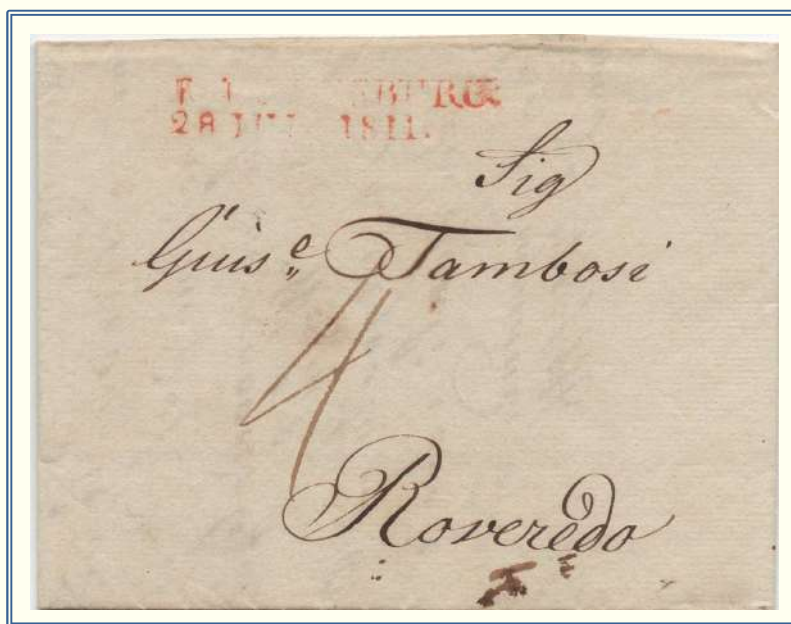 28 JUL 1811.
Sig
Gius.e Tambosi
4
Roveredo